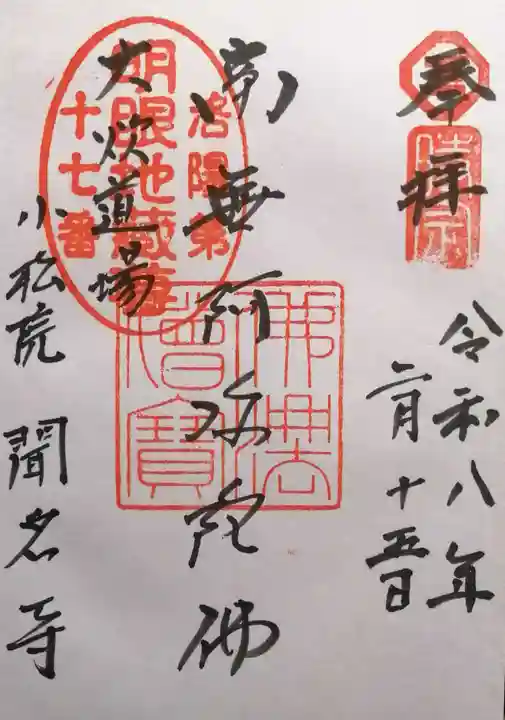 奉拝
時宗
令和八年
二月十五日
南無阿弥陀佛
佛法僧寳
洛陽第
明眼地蔵尊
十七番
大炊道場
小松院 聞名寺